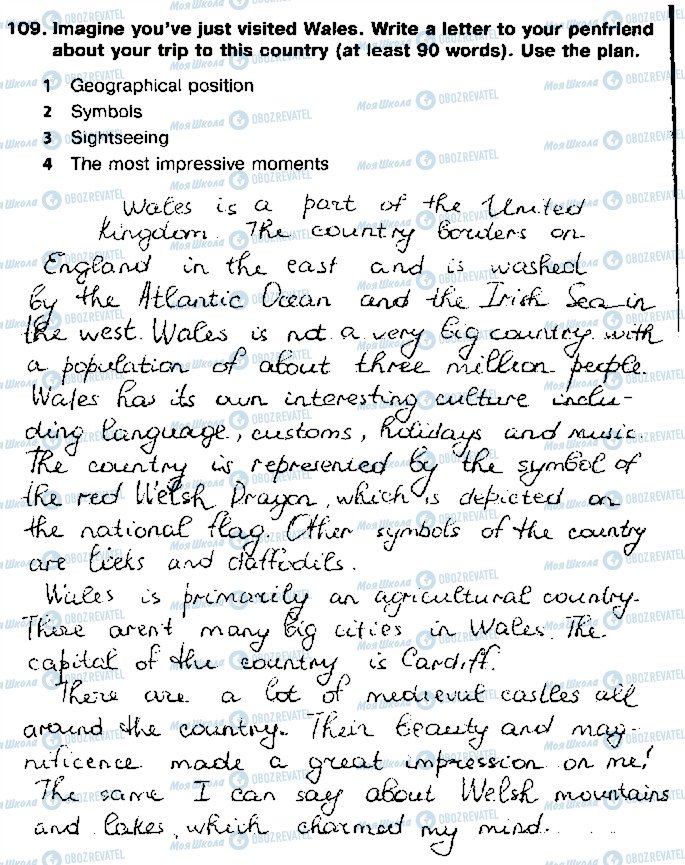 109. Imagine you've just visited Wales. Write a letter to your penfriend
about your trip to this country (at least 90 words). Use the plan.
1 Geographical position
2 Symbols
3 Sightseeing
4 The most impressive moments
Wales is a part of the United
Kingdom. The country borders on
England in the east and is washed
by the Atlantic Ocean and the Irish Sea in
the west. Wales is not a very big country with
a population of about three million people.
Wales has its own interesting culture inclu-
ding language, customs, holidays and music.
The country is represented by the symbol of
the red Welsh Dragon, which is depicted on
the national flag. Other symbols of the country
are leeks and daffodils.
Wales is primarily an agricultural country.
There arent many big cities in Wales. The
capital of the country is Cardiff.
There are a lot of medieval castles all
around the country. Their beauty and mag-
nificence made a great impression on me!
The same I can say about Welsh mountains
and lakes, which charmed my mind.
Моя Школа OBOZREVATEL